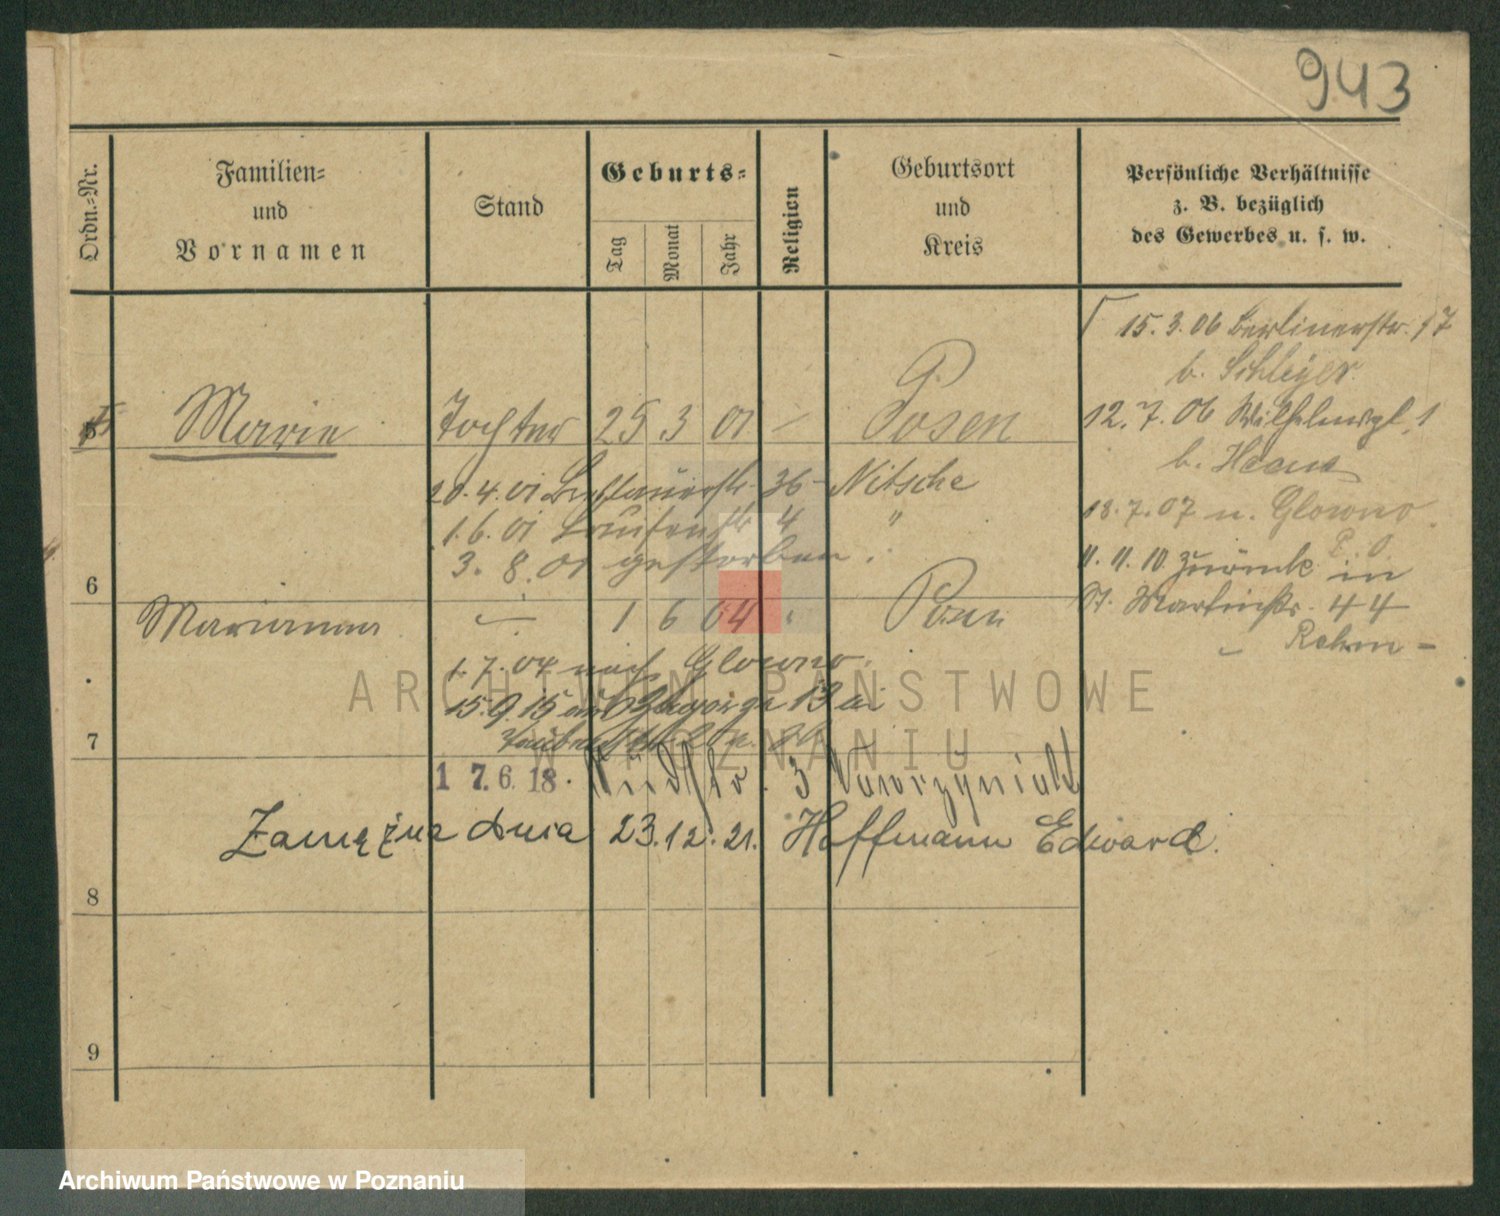 943
Ordn.-Nr.
Familien-
und
Vornamen
Stand
Geburts-
Tag
Monat
Jahr
Religion
Geburtsort
und
Kreis
Persönliche Verhältnisse
z. B. bezüglich
des Gewerbes u. s. w.
15.3.06 Berlinerstr. 17
b. Schleyer
5 Marie Tochter 25 3 01 - Posen
12.7.06 Wilhelmspl. 1
b.
20.4.01 36 Nitsche
18.7.07 n. Glowno
1.6.01 4 "
3.8.01 gestorben.
11.11.10 zurück in
6
St. Martinstr. 44
Marianna 1 6 04 Posen
1.7.04 nach Glowno.
15.9.15
7
17.6.18. 3 Wawrzyniak
Zamężna dnia 23.12.21. Hoffmann Edward.
8
9
ARCHIWUM PAŃSTWOWE
W POZNANIU
Archiwum Państwowe w Poznaniu